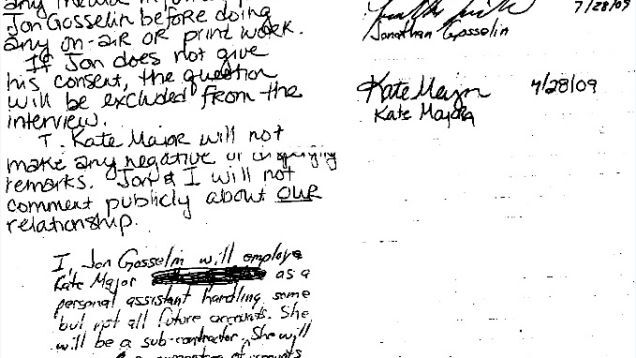 any media
Jon Gosselin before doing
any on-air or print work.
If Jon does not give
his consent, the question
will be excluded from the
interview.
I. Kate Major will not
make any negative or
remarks. Jon & I will not
comment publicly about OUR
relationship.
I, Jon Gosselin will employe
Kate Major as a
personal assistant handling some
but not all future accounts. She
will be a sub-contractor. She will
7/28/09
Jonathan Gosselin
Kate Major 7/28/09
Kate Major